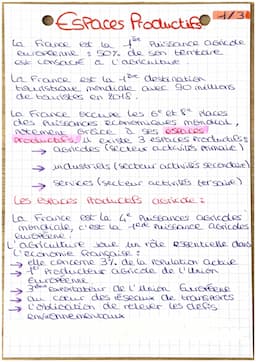 Espaces Productifs
1/3
La France est la 1ère Puissance agricole
européenne : 50% de son territoire
est consacré à l'agriculture.
La France est la 1ère destination
touristique mondiale avec 90 millions
de touristes en 2018.
La France occupe les 6e et 8e Places
des Puissances économiques mondial,
notement Grâce à ses espaces
Productifs, il existe 3 espaces Productifs :
→ agricoles (secteur activités Primaire)
→ industriels (secteur activités secondaire)
→ services (secteur activités tertiaire)
Les espaces Productifs agricole :
La France est la 4e Puissances agricoles
mondiale, c'est la 1ère Puissance agricoles
européene.
L'agriculture joue un rôle essentielle dans
l'économie française :
→ elle concerne 3% de la Population active
→ 1er Producteur agricole de l'Union
Européenne
→ 3e exportateur de l'Union Européenne
→ au cœur des réseaux de transports
→ l'obligation de relever les défis
environnementaux